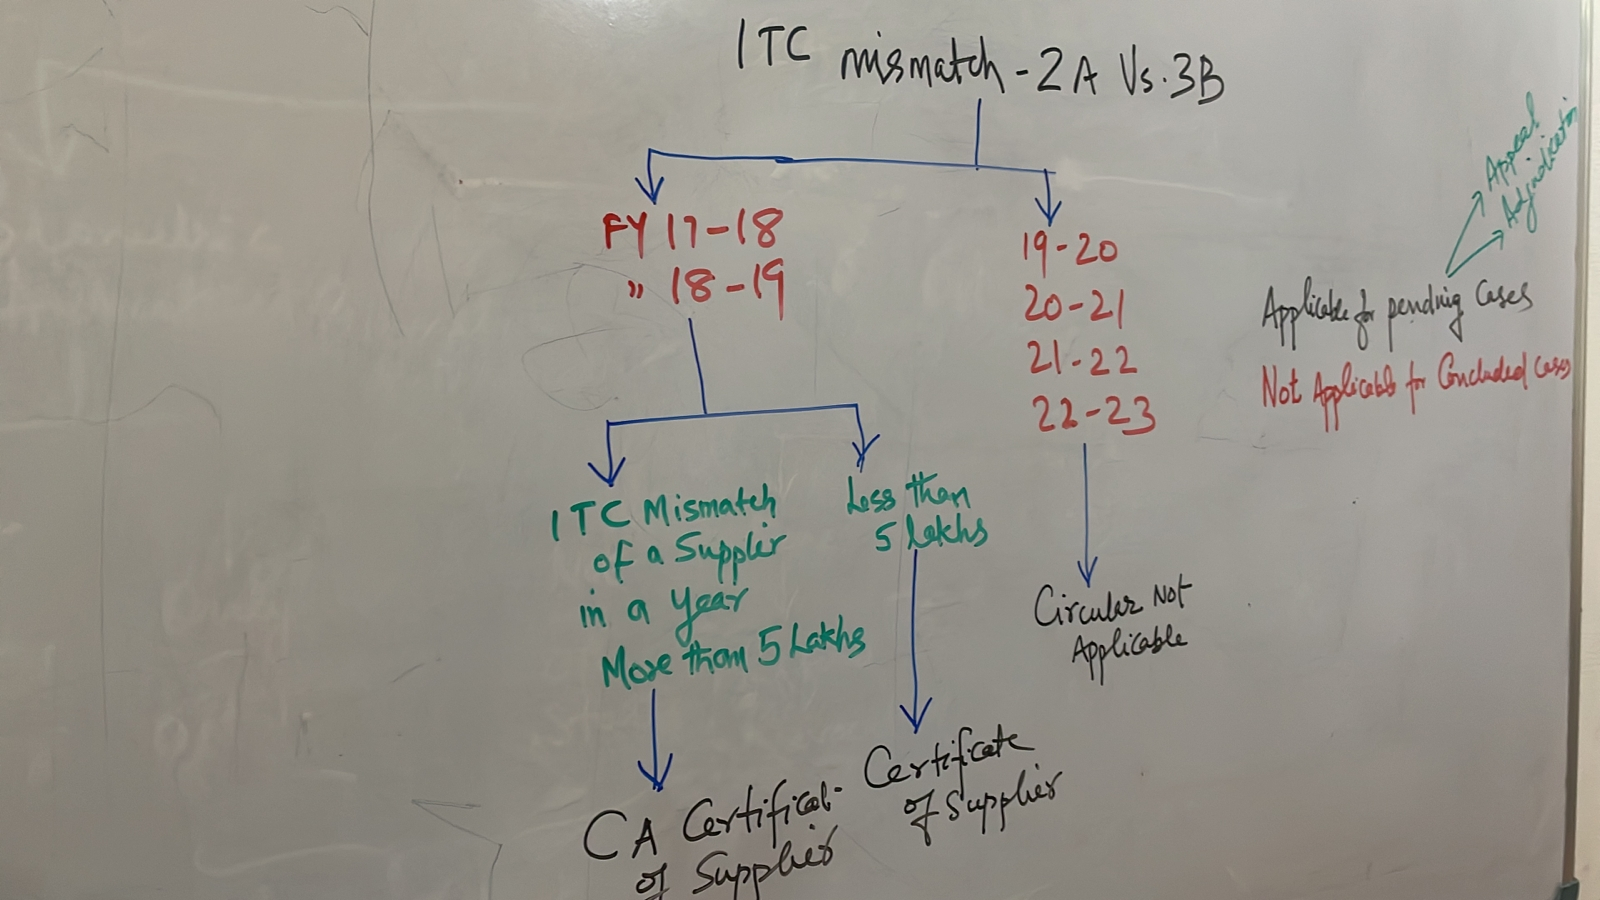 ITC mismatch - 2A Vs. 3B
FY 17-18
" 18-19
ITC Mismatch
of a Supplier
in a year
More than 5 Lakhs
CA Certificat-
of Supplier
Less than
5 Lakhs
Certificate
of Supplier
19-20
20-21
21-22
22-23
Circular Not
Applicable
Appeal
Adjudication
Applicable for pending Cases
Not Applicable for Concluded Cases